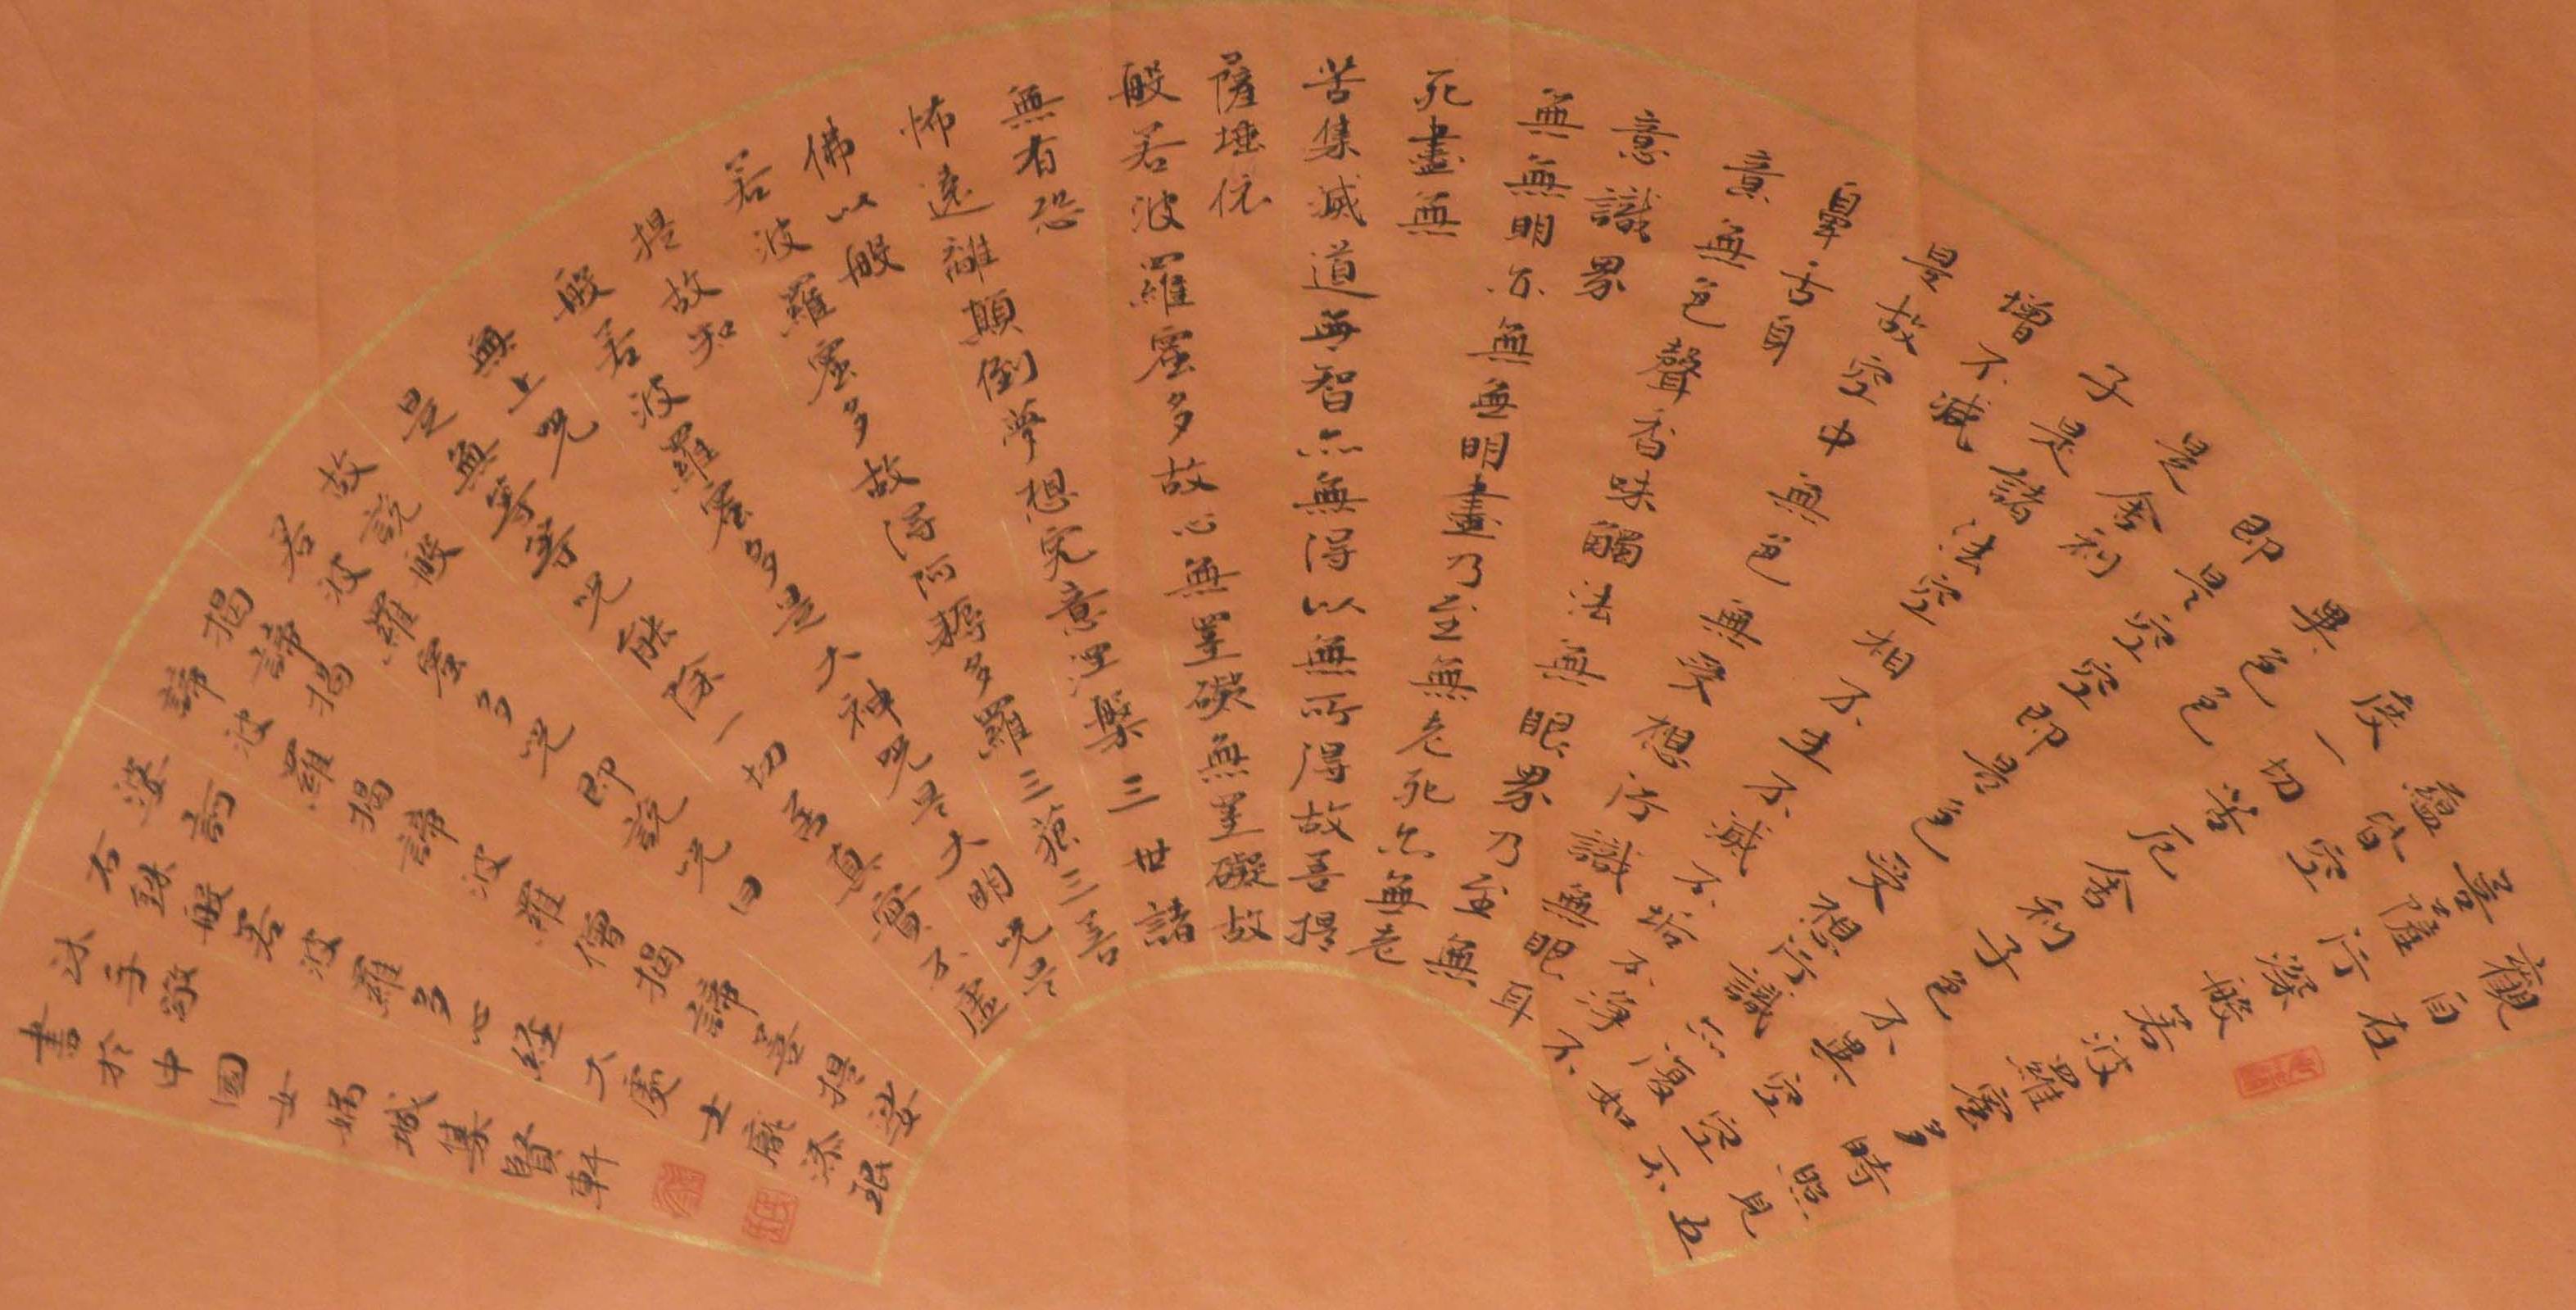 觀自在
菩薩行深般若波羅蜜多時照見五
蘊皆空
度一切苦厄舍利子色不異空空不
異色色
即是空空即是色受想行識亦復如
是舍利
子是諸法空相不生不滅不垢不淨不
增不減
是故空中無色無受想行識無眼耳
鼻舌身
意無色聲香味觸法無眼界乃至無
意識界
無無明亦無無明盡乃至無老死亦無老
死盡無
苦集滅道無智亦無得以無所得故菩提
薩埵依
般若波羅蜜多故心無罣礙無罣礙故
無有恐
怖遠離顛倒夢想究意涅槃三世諸
佛以般
若波羅蜜多故得阿耨多羅三藐三菩
提故知
般若波羅蜜多是大神咒是大明咒是
無上咒
是無等等咒能除一切至真實不虛
故說般
若波羅蜜多咒即說咒曰
揭諦揭
諦波羅揭諦波羅僧揭諦菩提娑
婆訶
右錄般若波羅多心經大處士龐添珉
沐手敬
書於中國女媧城集賢軒